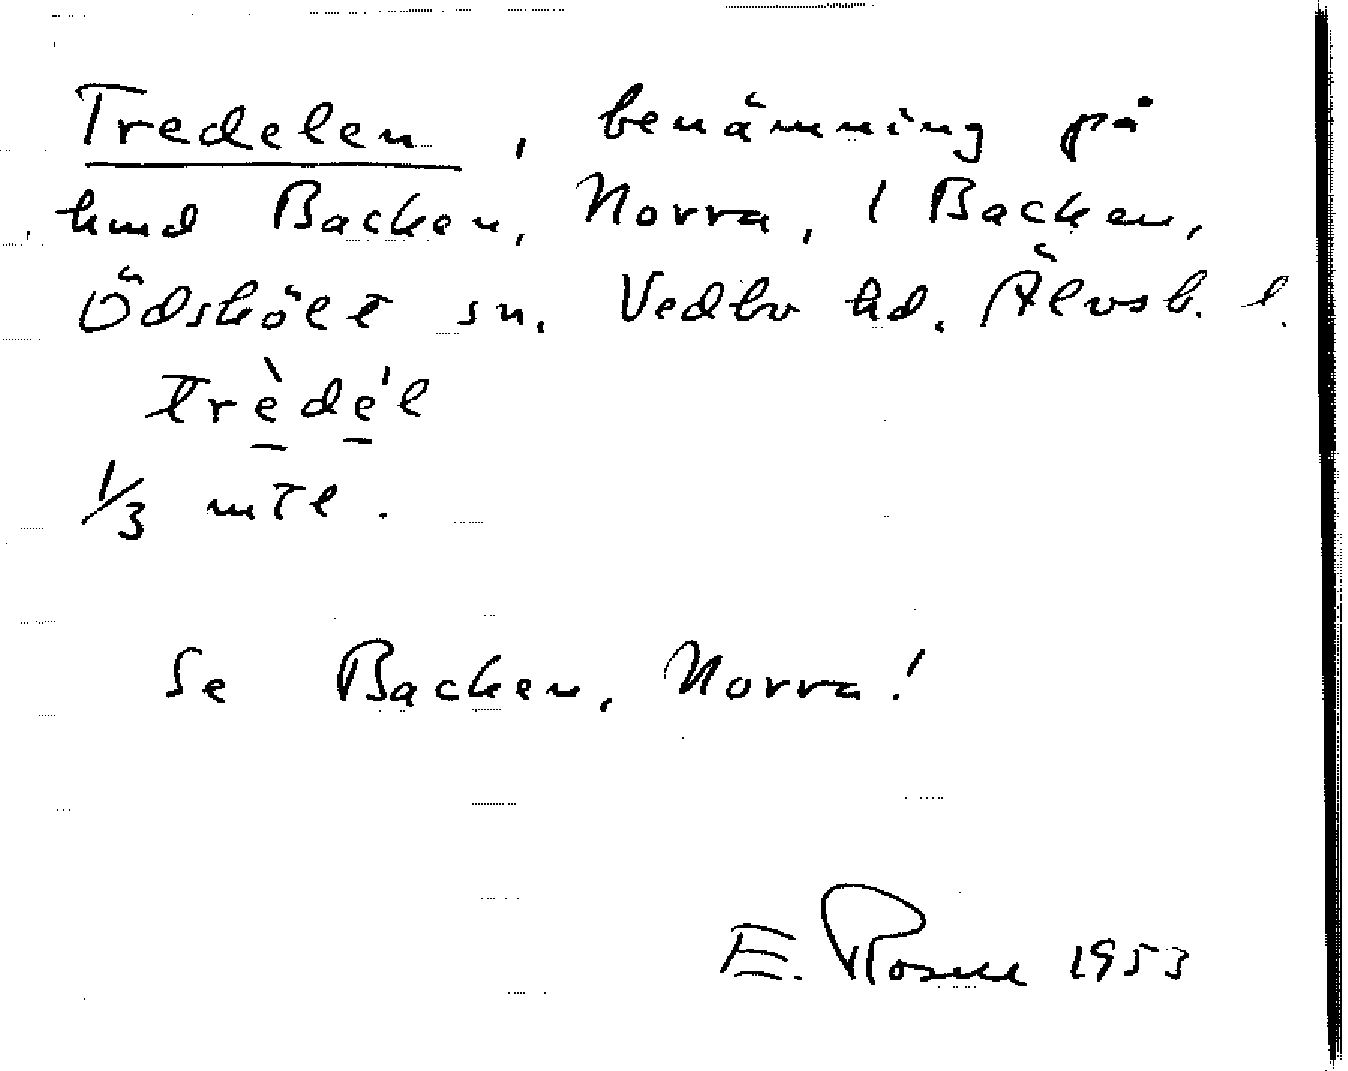 Tredelen, benämning på
hmd Backen, Norra, i Backen,
Ödskölt sn. Vedbo hd. Älvsb. l.
trèdél
1/3 mtl.
Se Backen, Norra!
E. Rosell 1953